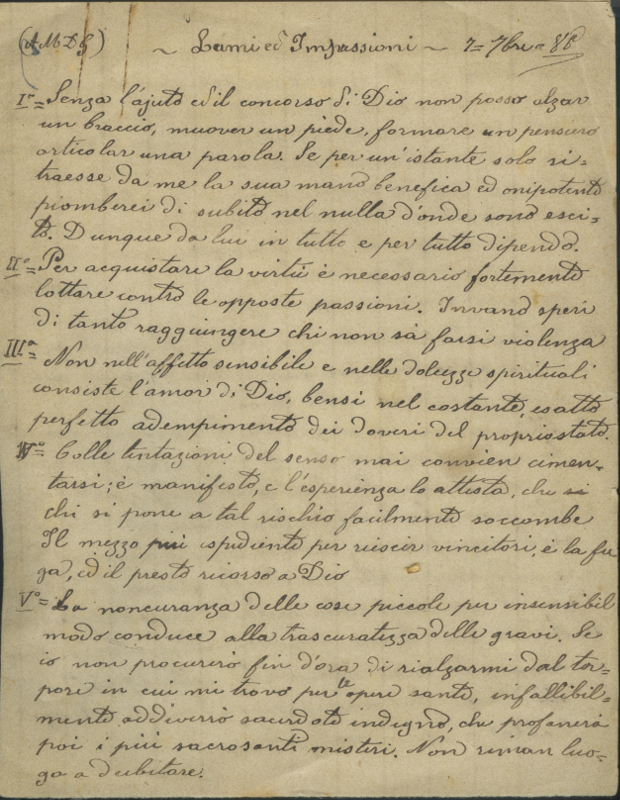 (A M D G) ~ Lumi ed Impressioni ~ 7= 7bre = 86
I°= Senza l'ajuto ed il concorso di Dio non posso alzar
un braccio, muover un piede, formare un pensiero
articolar una parola. Se per un'istante solo ri-
traesse da me la sua mano benefica ed onipotente
piomberei di subito nel nulla d'onde sono esci-
to. Dunque da lui in tutto e per tutto dipendo.
II°= Per acquistare la virtù è necessario fortemente
lottare contro le opposte passioni. Invano speri
di tanto raggiungere chi non sà farsi violenza
III°= Non nell'affetto sensibile e nelle dolcezze spirituali
consiste l'amor di Dio, bensi nel costante, esatto
perfetto adempimento dei doveri del proprio stato.
IV°= Colle tentazioni del senso mai convien cimen-
tarsi; è manifesto, e l'esperienza lo attesta, che
chi si pone a tal rischio facilmente soccombe
Il mezzo più espediente per riescir vincitori, è la fu
ga, ed il presto ricorso a Dio
V°= La noncuranza delle cose piccole per insensibil
modo conduce alla trascuratezza delle gravi. Se
io non procurerò fin d'ora di rialzarmi dal tor=
pore in cui mi trovo per le opere sante, infallibil-
mente addiverrò sacerdote indegno, che profanerà
poi i più sacrosanti misteri. Non riman luo-
go a dubitare.